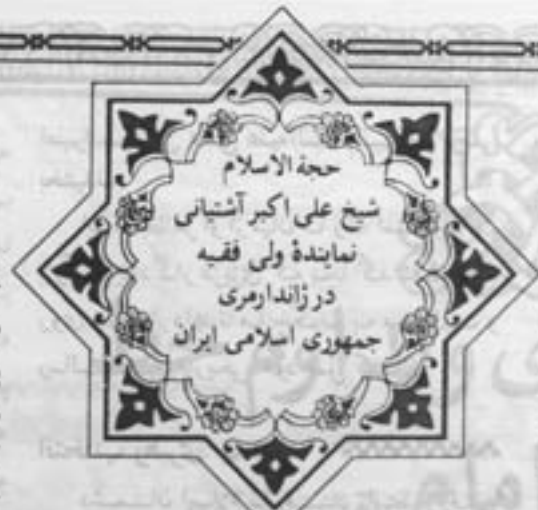 حجة الاسلام
شیخ علی اکبر آشتیانی
نمایندهٔ ولی فقیه
در ژاندارمری
جمهوری اسلامی ایران